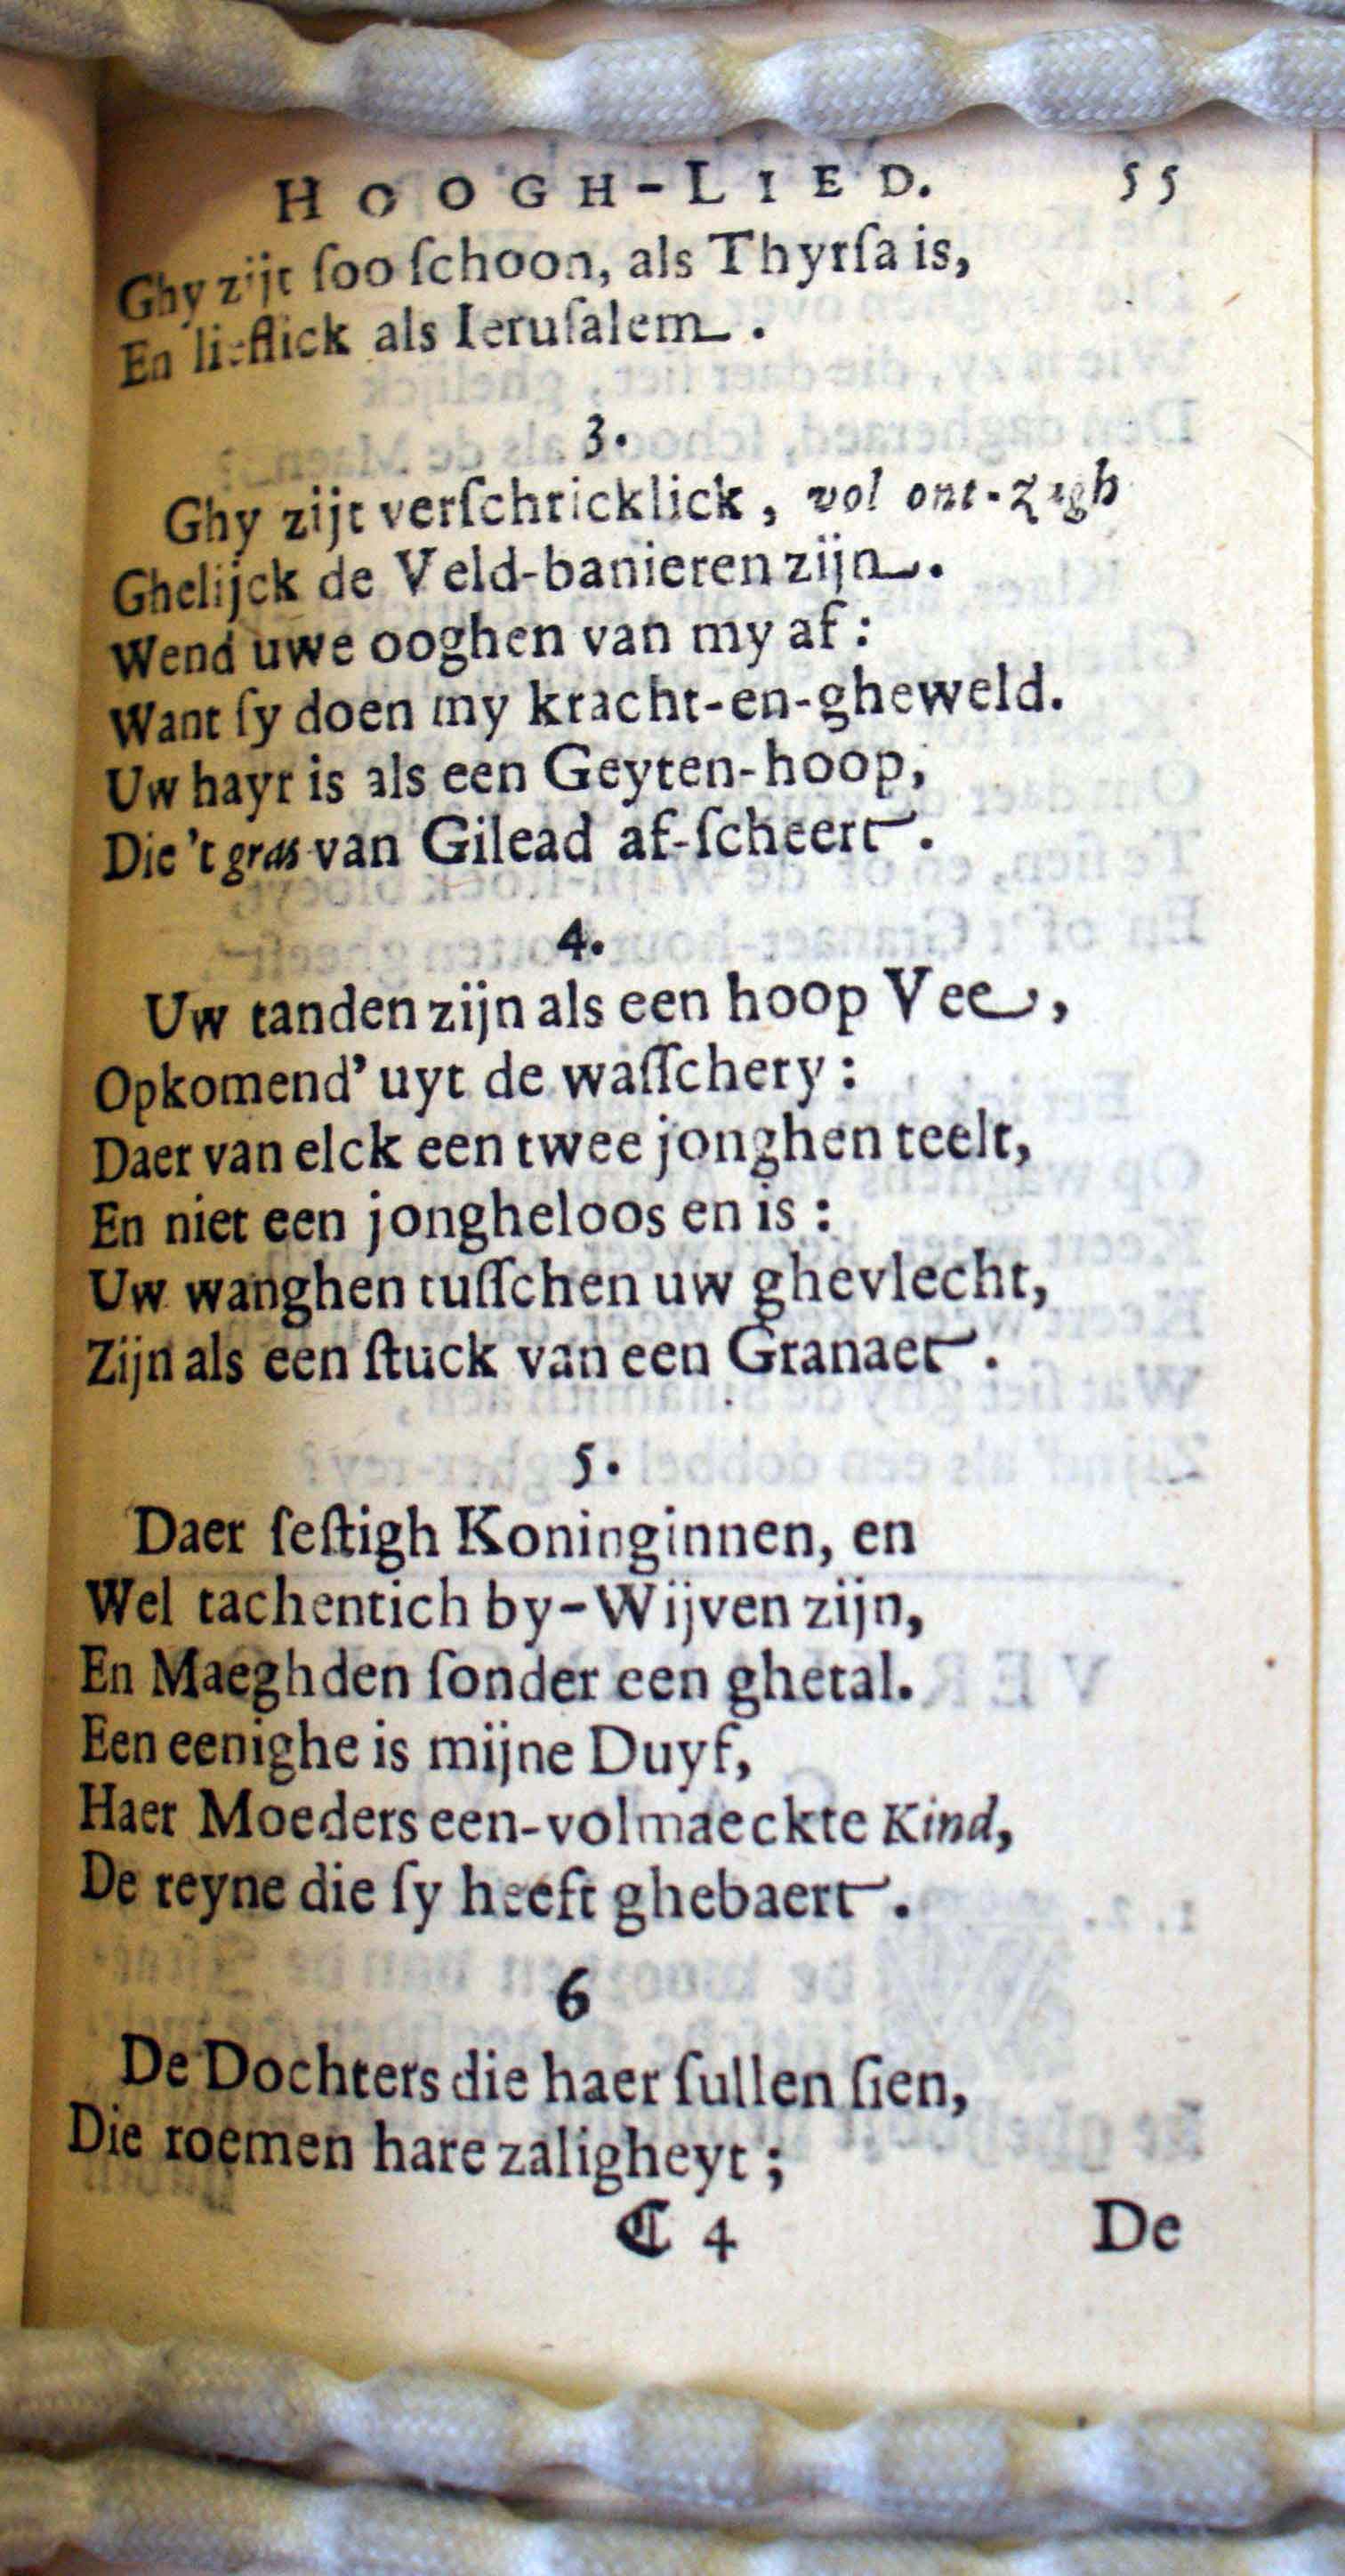 HOOGH-LIED. 55
Ghy zijt ſoo ſchoon, als Thyrſa is,
En lieflick als Ieruſalem.
3.
Ghy zijt verſchricklick, vol ont-zigh
Ghelijck de Veld-banieren zijn.
Wend uwe ooghen van my af:
Want ſy doen my kracht-en-gheweld.
Uw hayr is als een Geyten-hoop,
Die 't gras van Gilead af-ſcheert.
4.
Uw tanden zijn als een hoop Vee,
Opkomend' uyt de waſſchery:
Daer van elck een twee jonghen teelt,
En niet een jongheloos en is:
Uw wanghen tuſſchen uw ghevlecht,
Zijn als een ſtuck van een Granaet.
5.
Daer ſeſtigh Koninginnen, en
Wel tachentich by-Wijven zijn,
En Maeghden ſonder een ghetal.
Een eenighe is mijne Duyf,
Haer Moeders een-volmaeckte Kind,
De reyne die ſy heeft ghebaert.
6
De Dochters die haer ſullen ſien,
Die roemen hare zaligheyt;
C 4 De